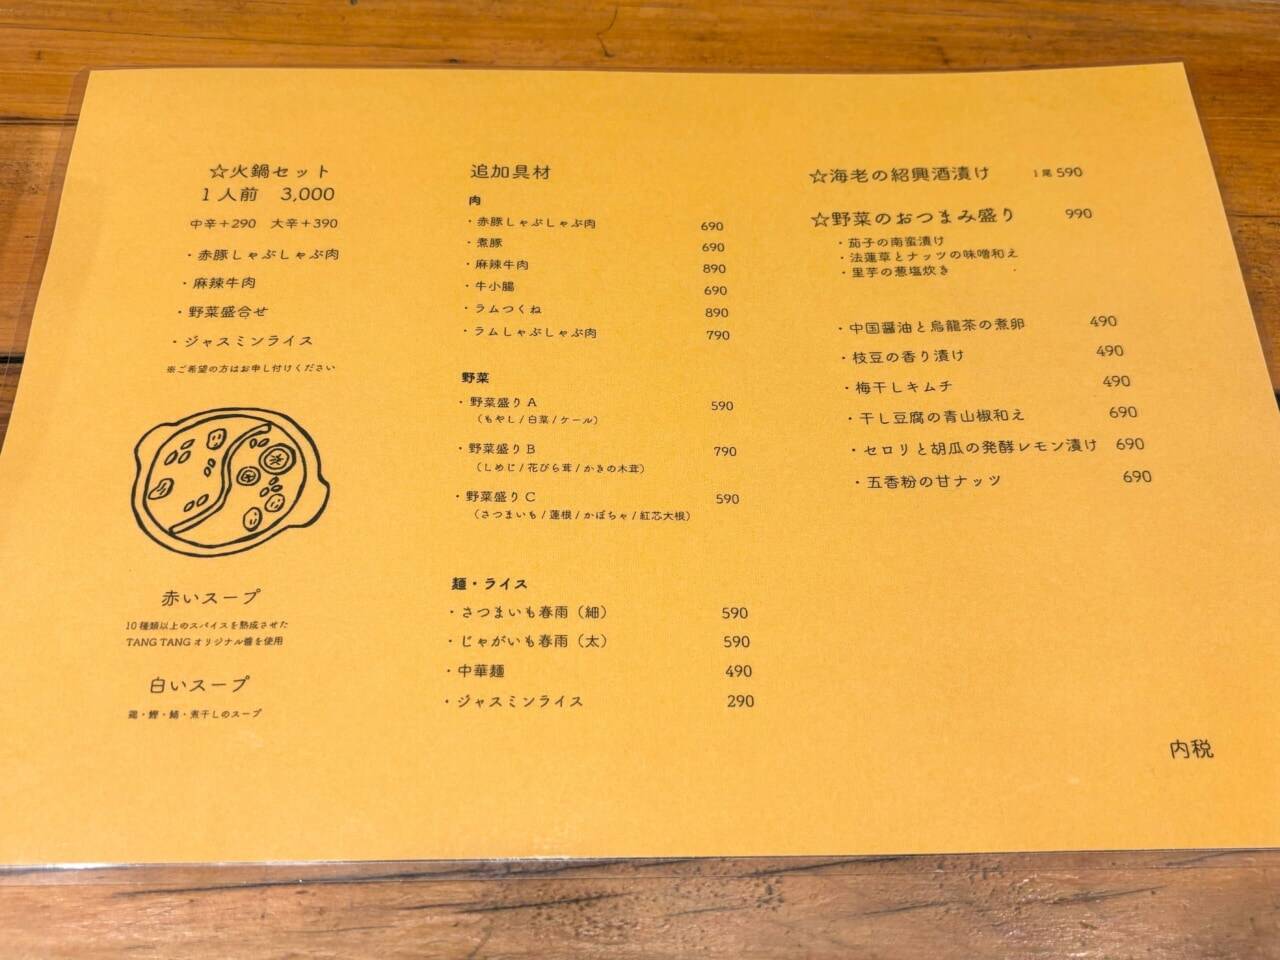 ☆火鍋セット
1人前 3,000
中辛+290 大辛+390
・赤豚しゃぶしゃぶ肉
・麻辣牛肉
・野菜盛合せ
・ジャスミンライス
※ご希望の方はお申し付けください
赤いスープ
10種類以上のスパイスを熟成させた
TANG TANGオリジナル醬を使用
白いスープ
鶏・鰹・鯖・煮干しのスープ
追加具材
肉
・赤豚しゃぶしゃぶ肉 690
・煮豚 690
・麻辣牛肉 890
・牛小腸 690
・ラムつくね 890
・ラムしゃぶしゃぶ肉 790
野菜
・野菜盛りA 590
(もやし/白菜/ケール)
・野菜盛りB 790
(しめじ/花びら茸/かきの木茸)
・野菜盛りC 590
(さつまいも/蓮根/かぼちゃ/紅芯大根)
麺・ライス
・さつまいも春雨(細) 590
・じゃがいも春雨(太) 590
・中華麺 490
・ジャスミンライス 290
☆海老の紹興酒漬け 1尾590
☆野菜のおつまみ盛り 990
・茄子の南蛮漬け
・法蓮草とナッツの味噌和え
・里芋の葱塩炊き
・中国醤油と烏龍茶の煮卵 490
・枝豆の香り漬け 490
・梅干しキムチ 490
・干し豆腐の青山椒和え 690
・セロリと胡瓜の発酵レモン漬け 690
・五香粉の甘ナッツ 690
内税